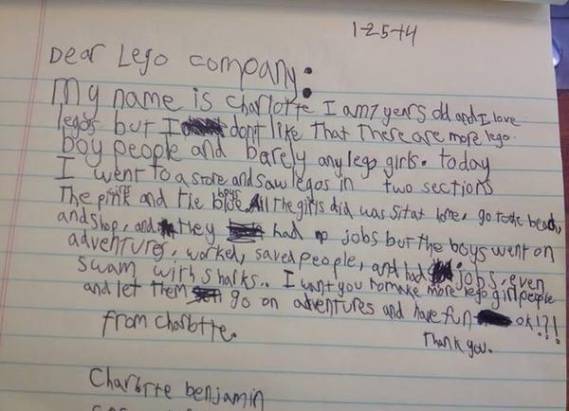 1-25-14
Dear Lego company:
My name is Charlotte I am 7 years old and I love
legos but I don't like that There are more lego
boy people and barely any lego girls. today
I went to a store and saw legos in two sections
The pink girls and the blue boys. All the girls did was sit at home, go to the beach,
and shop, and they had no jobs but the boys went on
adventures, worked, saved people, and had jobs, even
swam with sharks.. I want you to make more lego girl people
and let them go on adventures and have fun ok!?!
from charlotte. Thank you.
Charlotte benjamin